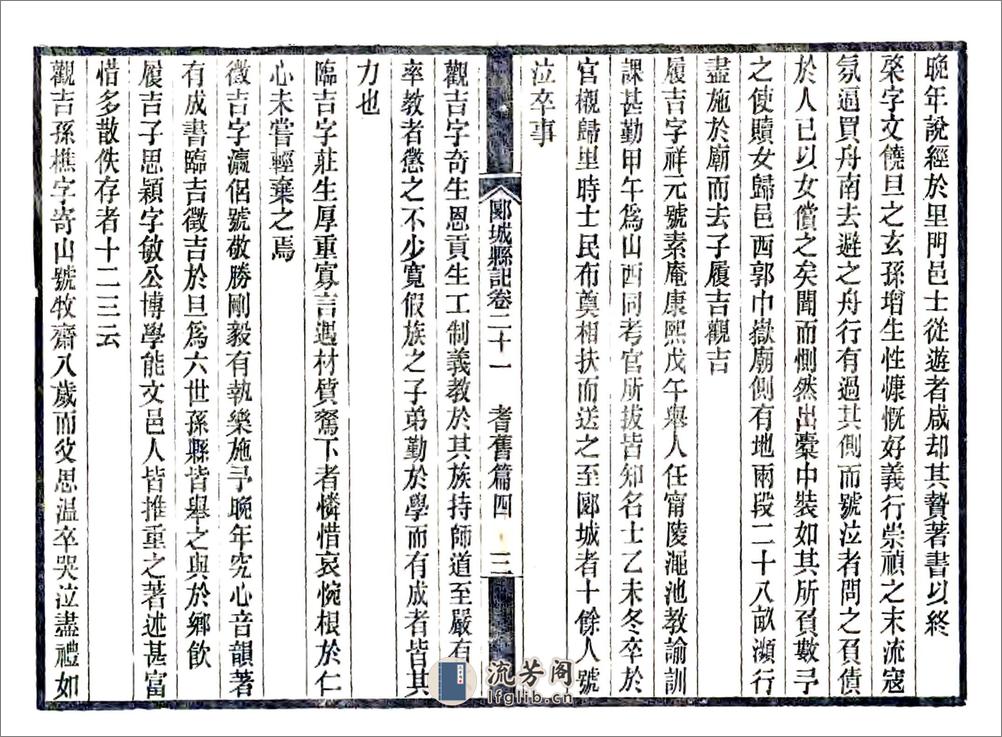 晚年說經於里門邑士從遊者咸却其贄著書以終
棨字文饒旦之玄孫增生性慷慨好義行崇禎之末流寇
氛逼買舟南去避之舟行有過其側而號泣者問之負債
於人已以女償之矣聞而惻然出橐中裝如其所負數予
之使贖女歸邑西郭巾嶽廟側有地兩段二十八畝瀕行
盡施於廟而去子履吉觀吉
履吉字祥元號素庵康熙戊午舉人任甯陵澠池教諭訓
課甚勤甲午爲山西同考官所拔皆知名士乙未冬卒於
官櫬歸里時士民布奠相扶而送之至郾城者十餘人號
泣卒事
郾城縣記卷二十一 耆舊篇四 三
觀吉字奇生恩貢生工制義教於其族持師道至嚴有
率教者懲之不少寬假族之子弟勤於學而有成者皆其
力也
臨吉字莊生厚重寡言遇材質駑下者憐惜哀惋根於仁
心未嘗輕棄之焉
徵吉字瀛侶號敬勝剛毅有執樂施予晚年究心音韻著
有成書臨吉徵吉於旦爲六世孫縣皆舉之與於鄉飲
履吉子思穎字敏公博學能文邑人皆推重之著述甚富
惜多散佚存者十二三云
觀吉孫樵字寄山號牧齋八歲而父思温卒哭泣盡禮如
流芳阁
lfglib.cn